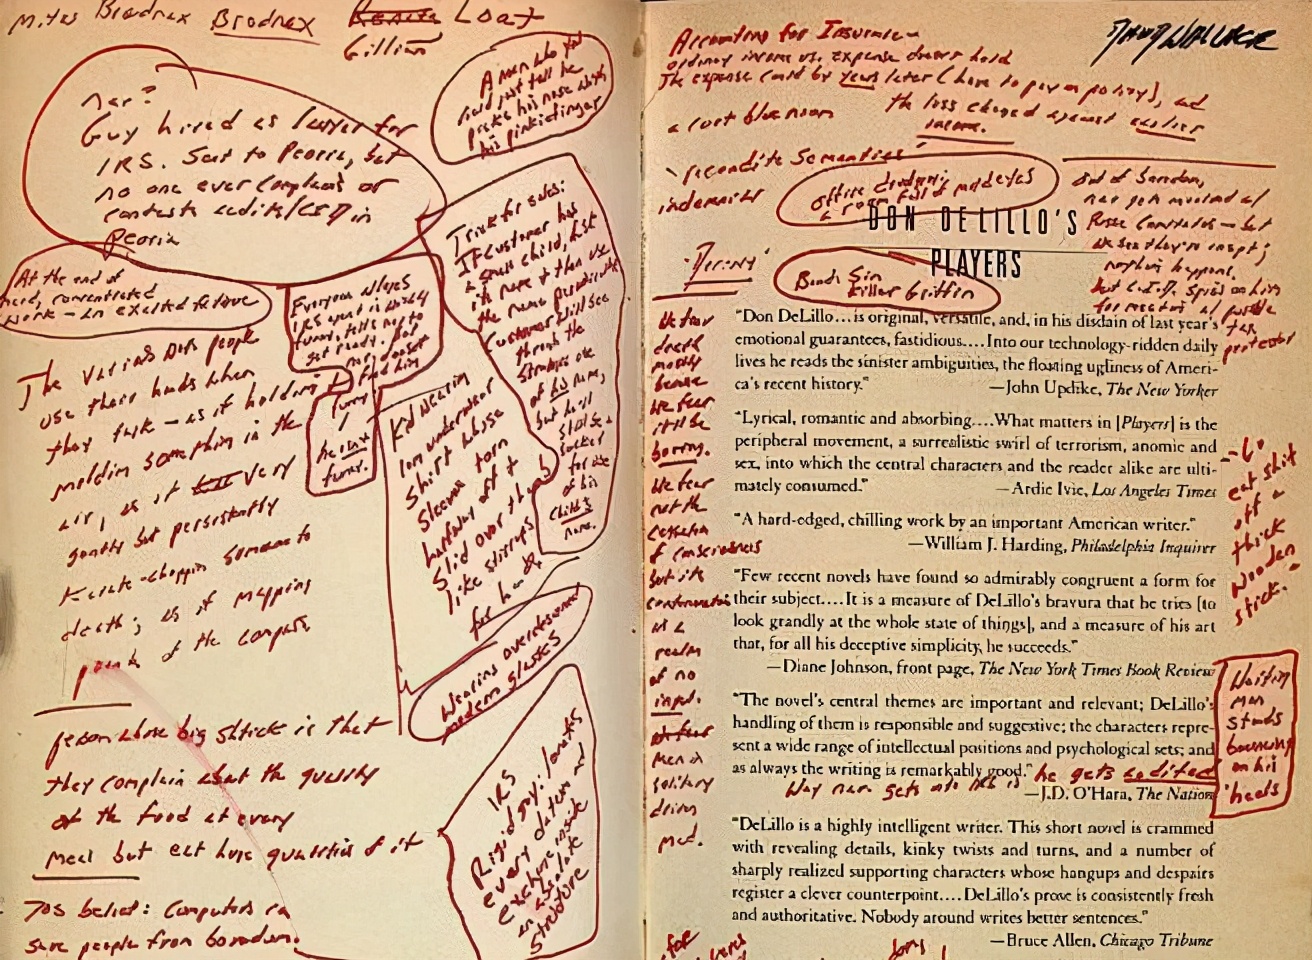 Mites Brodnax Brodnax Loat
Gillian
A man who you
could just tell he
picks his nose with
his pinkie finger
Nar?
Guy hired as lawyer for
IRS. Sent to Peoria, but
no one ever complains or
contests audits/CID in
Peoria
At the end of
hard, concentrated
work – an excited fatigue
Everyone always
funny, tells nar to
get ready. But
nar doesn't
find him
funny
he isn't
funny.
Trick for sales:
If customer has
a small child, ask
its name & then use
the name periodically
Customer will see
through the
strategic use
of his name,
but he'll
still be a
sucker
for use
of his
child's
name.
The various ways people
use their hands when
they talk – as if holding
something in the
air, as if very
gently but persistently
karate-chopping someone to
death; as if mapping
of the compass
Kid wearing
long underwear
shirt whose
sleeves torn
halfway off &
slid over thumb
like stirrups
for
Wearing
modern glasses
person whose big shtick is that
they complain about the quality
of the food at every
meal but eat huge quantities of it
IRS
Rigid guy: locates
every datum and
exchange inside
an absolute
structure
70s belief: Computers can
save people from boredom.
Accounting for Insurance –
ordinary income vs. expense doesn't hold
The expense could be years later (have to pay on policy), and
the loss charged against earlier
income.
David Wallace
a cort blue noon
'recondite semantics'
indemnitor
office drudgery
a room full of mild eyes
DON DELILLO'S
PLAYERS
'Jeremy'
Band: Sin
Killer Griffin
Out of boredom,
nar gets involved w/
Posse Comitatus – but
we see they're inept;
nothing happens.
but C.I.D. spies on him
for meeting w/ possible
tax
protestor
We fear
death
mostly
because
we fear
it'll be
boring.
We fear
not the
cessation
of consciousness
but its
continuation
as a
realm
of no
input.
men in
solitary
going
mad.
"Don DeLillo…is original, versatile, and, in his disdain of last year's
emotional guarantees, fastidious.…Into our technology-ridden daily
lives he reads the sinister ambiguities, the floating ugliness of Ameri-
ca's recent history."
—John Updike, The New Yorker
"Lyrical, romantic and absorbing.…What matters in [Players] is the
peripheral movement, a surrealistic swirl of terrorism, anomie and
sex, into which the central characters and the reader alike are ulti-
mately consumed."
—Ardie Ivie, Los Angeles Times
"A hard-edged, chilling work by an important American writer."
—William J. Harding, Philadelphia Inquirer
"Few recent novels have found so admirably congruent a form for
their subject.…It is a measure of DeLillo's bravura that he tries [to
look grandly at the whole state of things], and a measure of his art
that, for all his deceptive simplicity, he succeeds."
—Diane Johnson, front page, The New York Times Book Review
"The novel's central themes are important and relevant; DeLillo's
handling of them is responsible and suggestive; the characters repre-
sent a wide range of intellectual positions and psychological sets; and
as always the writing is remarkably good."
—J.D. O'Hara, The Nation
Way nar gets into IRS is he gets audited
"DeLillo is a highly intelligent writer. This short novel is crammed
with revealing details, kinky twists and turns, and a number of
sharply realized supporting characters whose hangups and despairs
register a clever counterpoint.…DeLillo's prose is consistently fresh
and authoritative. Nobody around writes better sentences."
—Bruce Allen, Chicago Tribune
eat shit
off a
thick
wooden
stick.
Waiting
man
stands
bouncing
on his
heels
for